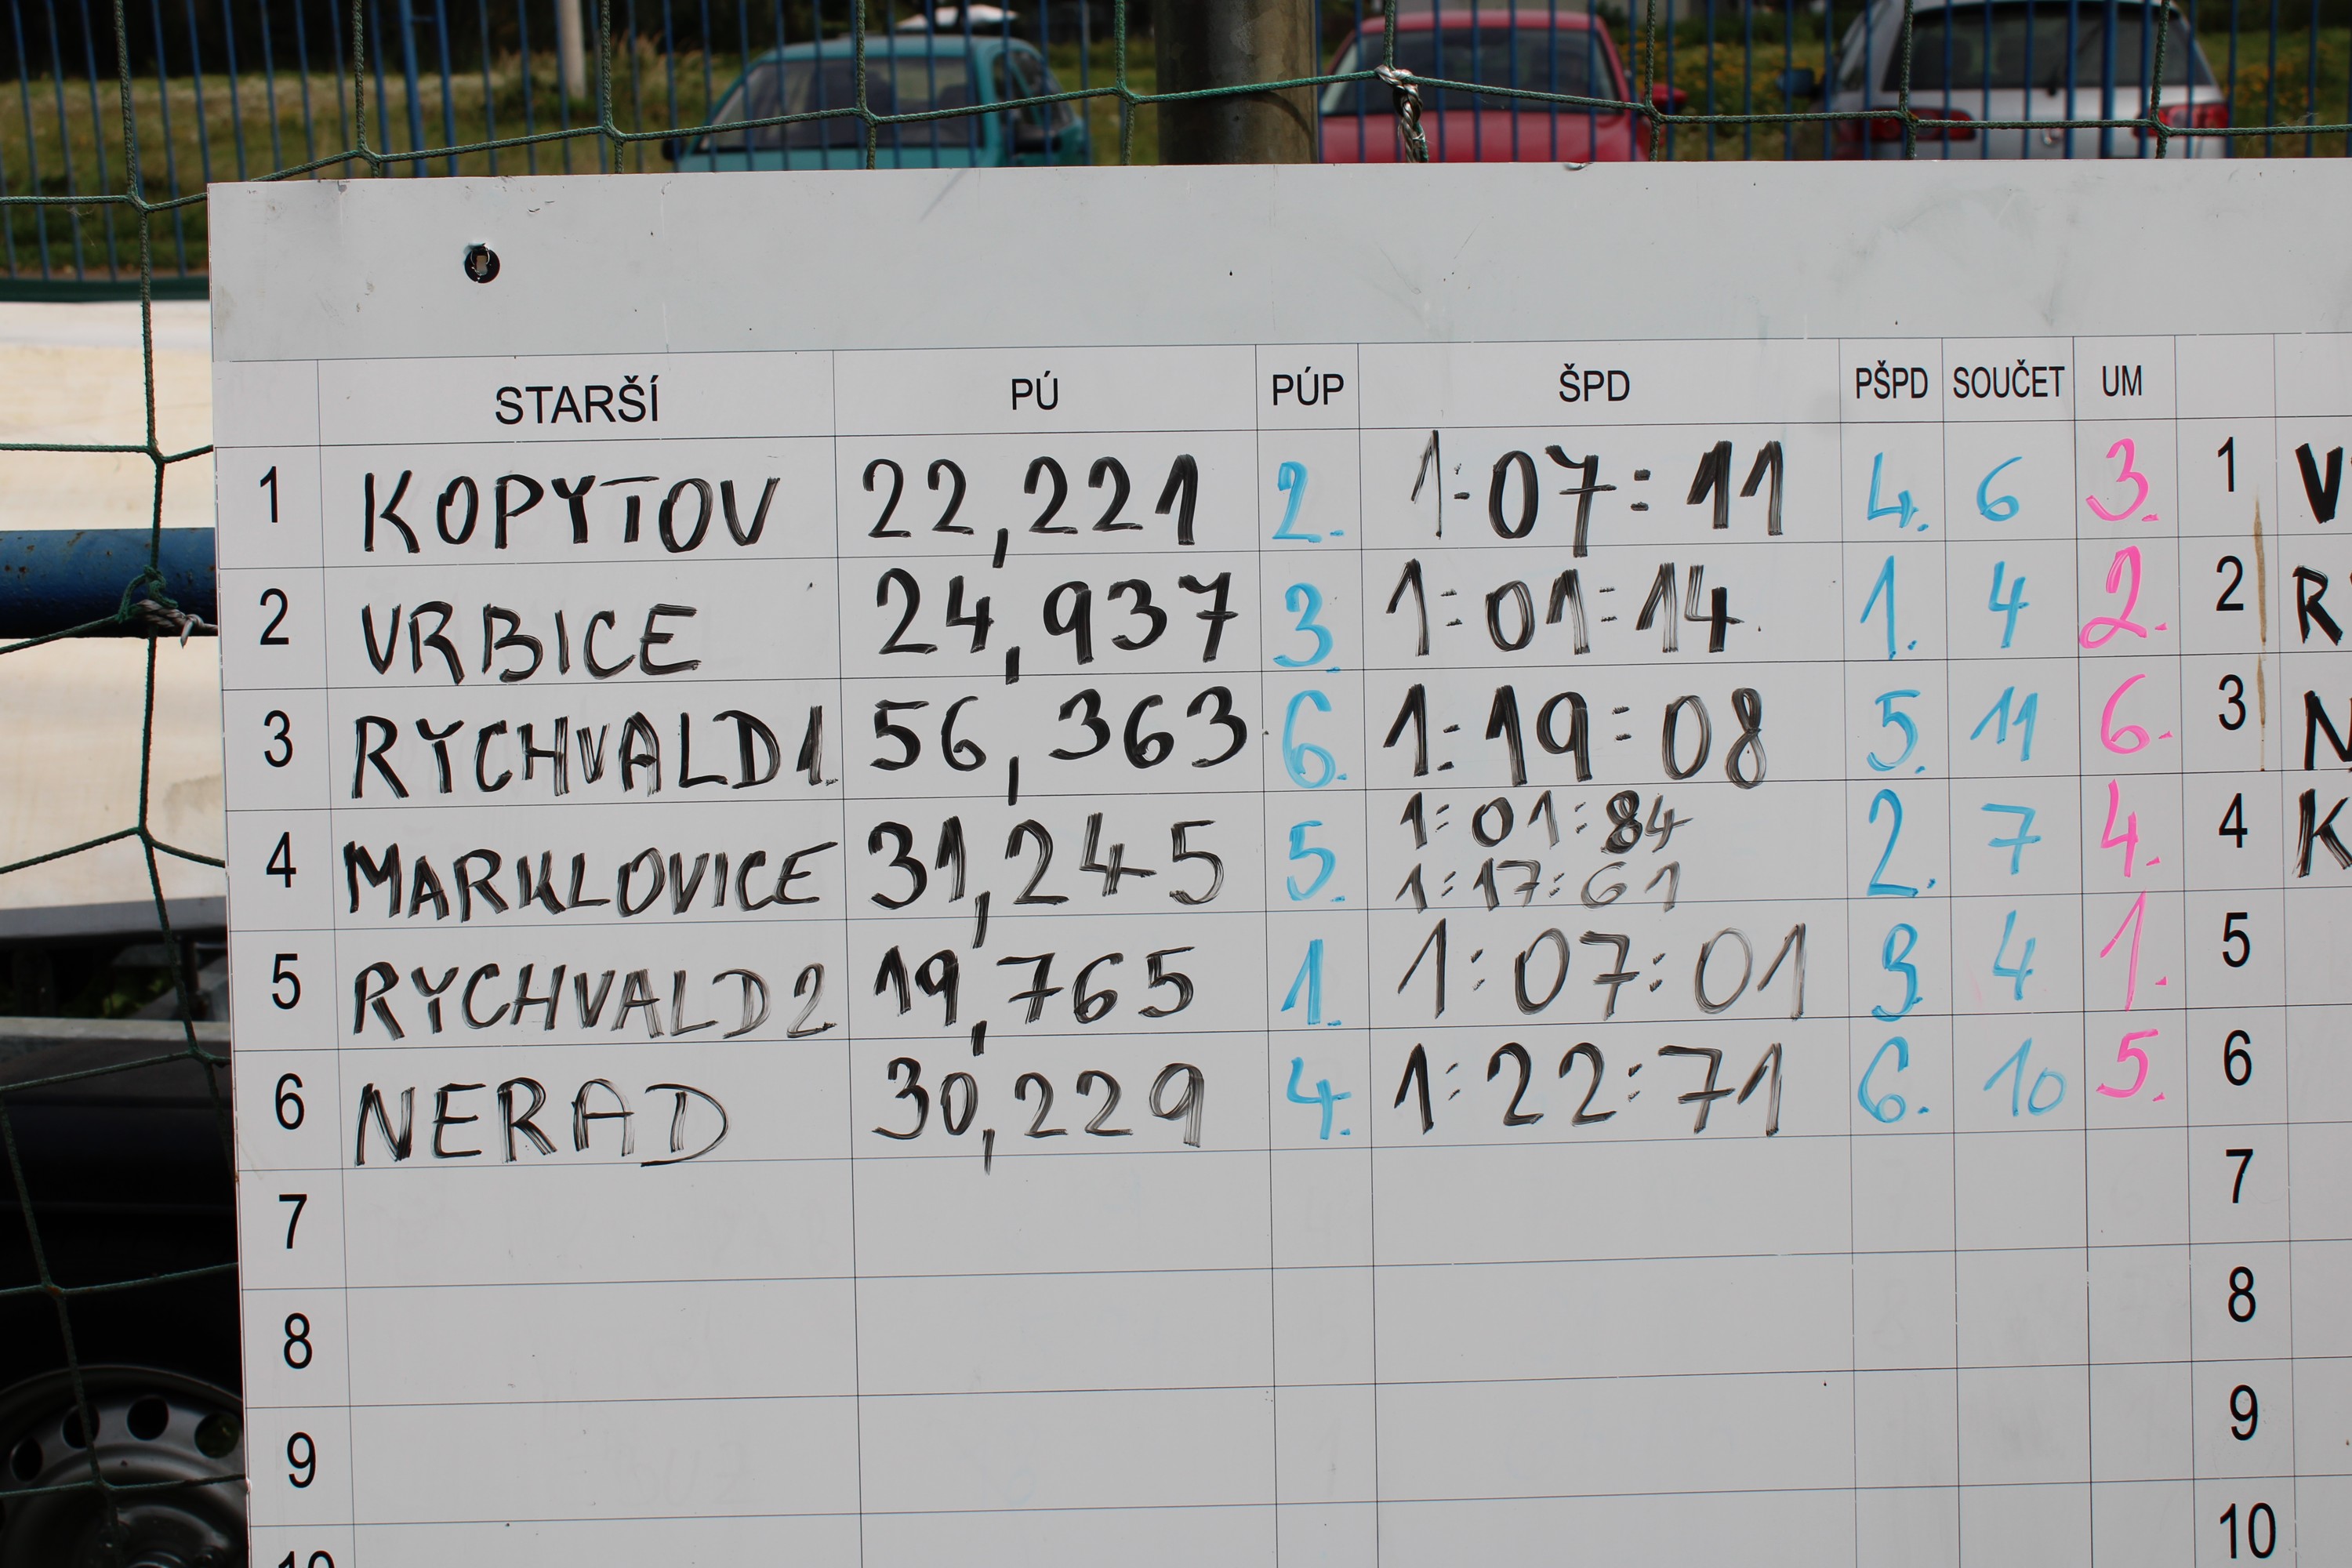 STARŠÍ PÚ PÚP ŠPD PŠPD SOUČET UM
1 KOPYTOV 22,221 2. 1:07:11 4. 6 3. 1 V
2 VRBICE 24,937 3. 1:01:14 1. 4 2. 2 R
3 RYCHVALD 1. 56,363 6. 1:19:08 5. 11 6. 3 N
4 MARKLOVICE 31,245 5. 1:01:84 2. 7 4. 4 K
1:17:61
5 RYCHVALD 2 19,765 1. 1:07:01 3. 4 1. 5
6 NERAD 30,229 4. 1:22:71 6. 10 5. 6
7 7
8 8
9 9
10 10